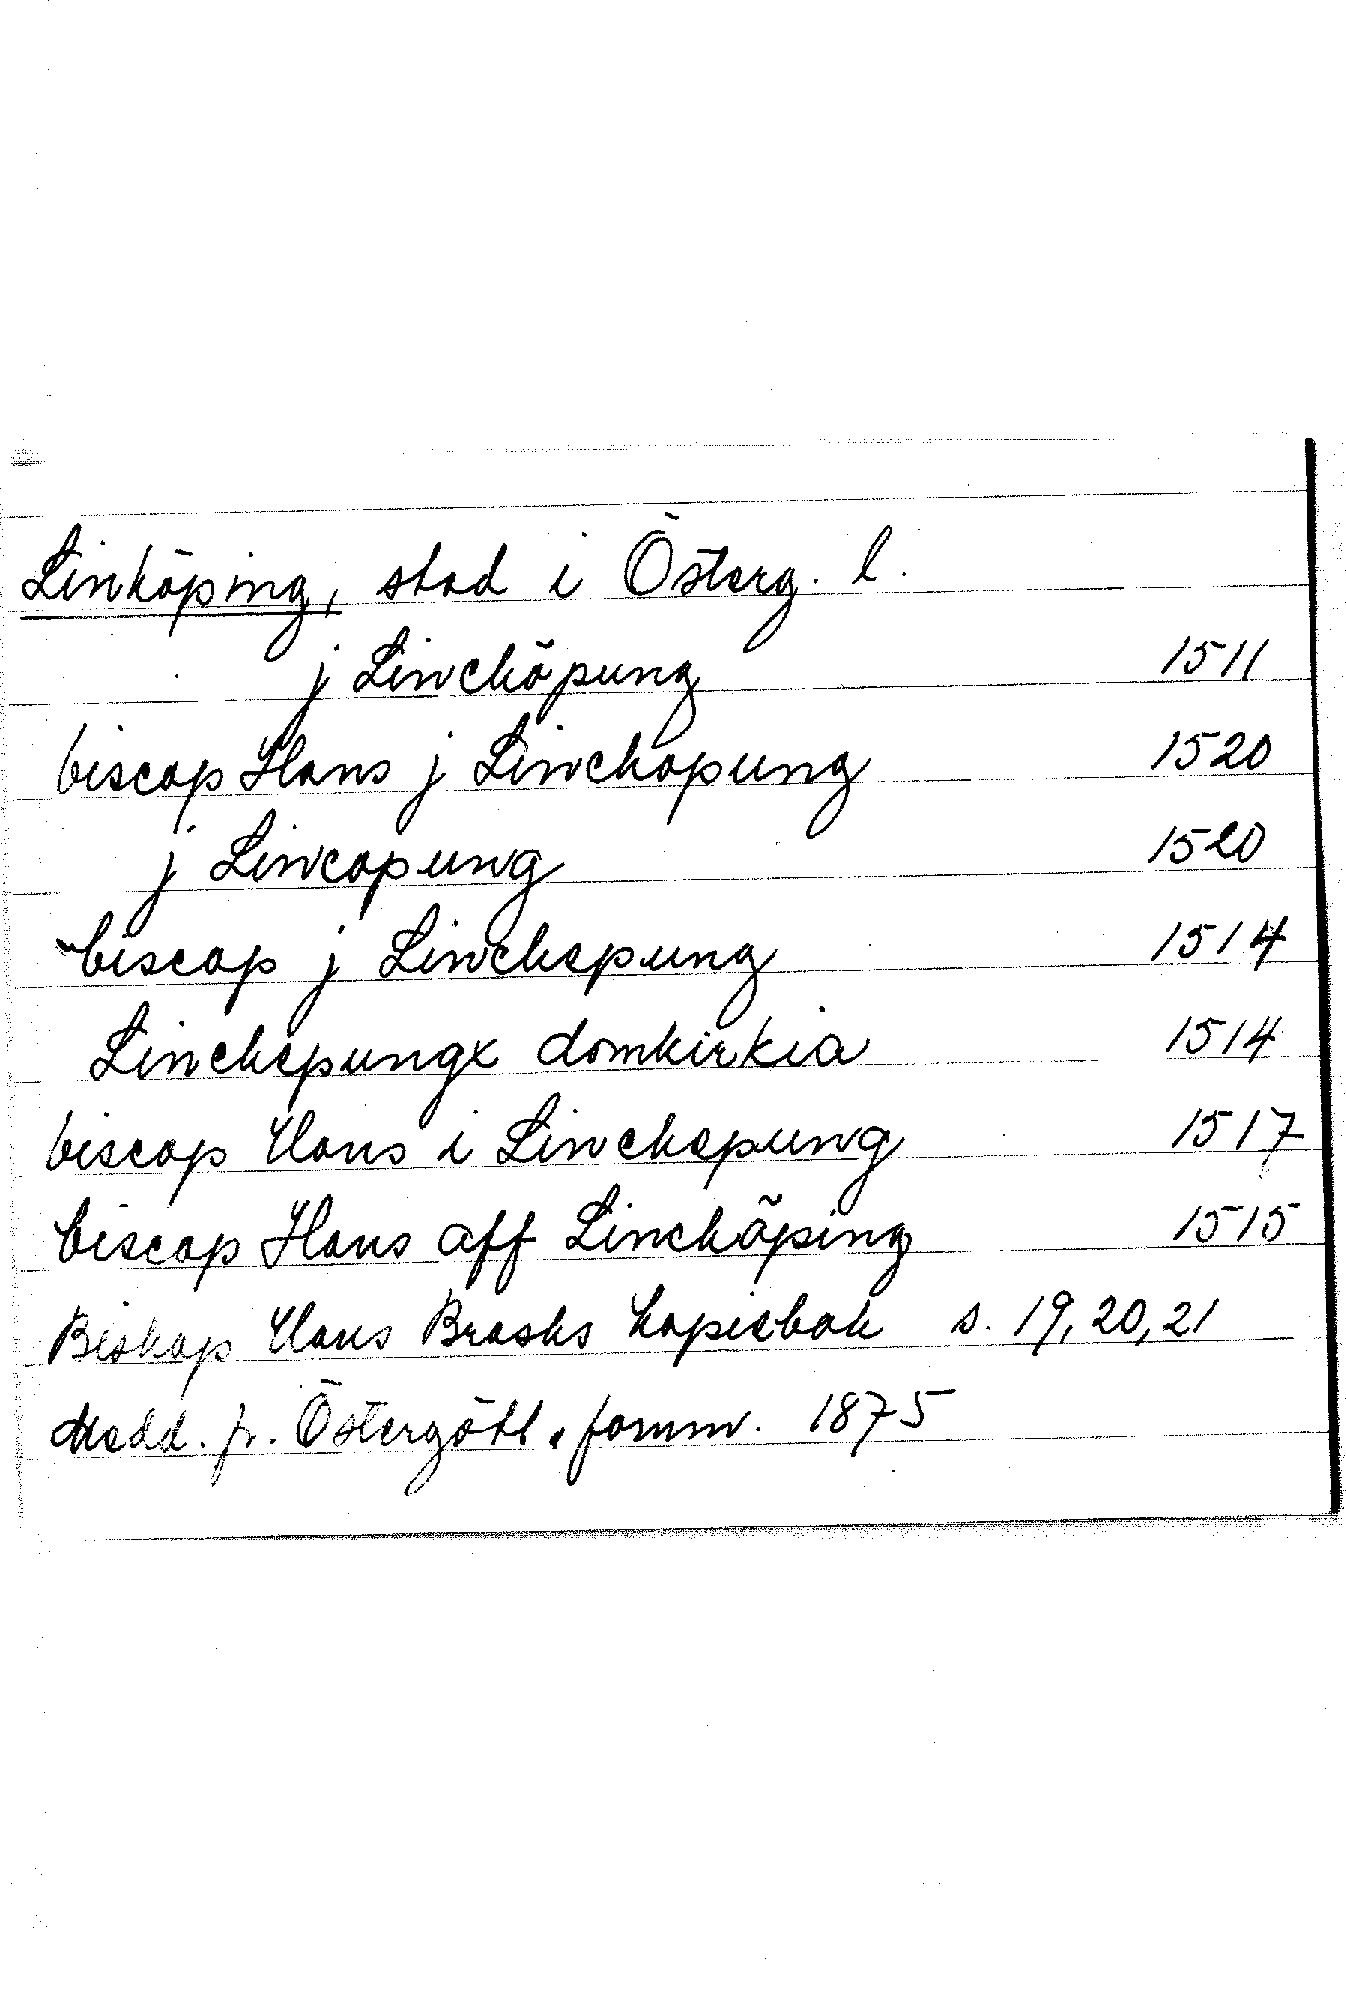 Linköping, stad i Österg. l.
j Linchöpung 1511
biscop Hans j Linchopung 1520
j Lincopung 1520
biscop j Linchepung 1514
Linchepungx domkirkia 1514
biscop Hans i Linchepung 1517
biscop Hans aff Linchöping 1515
Biskop Hans Brasks kopiebok s. 19, 20, 21
Medd. fr. Östergötl. fornm. 1875